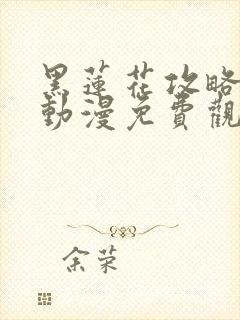 黑蓮花攻略
動漫免費觀
余荣